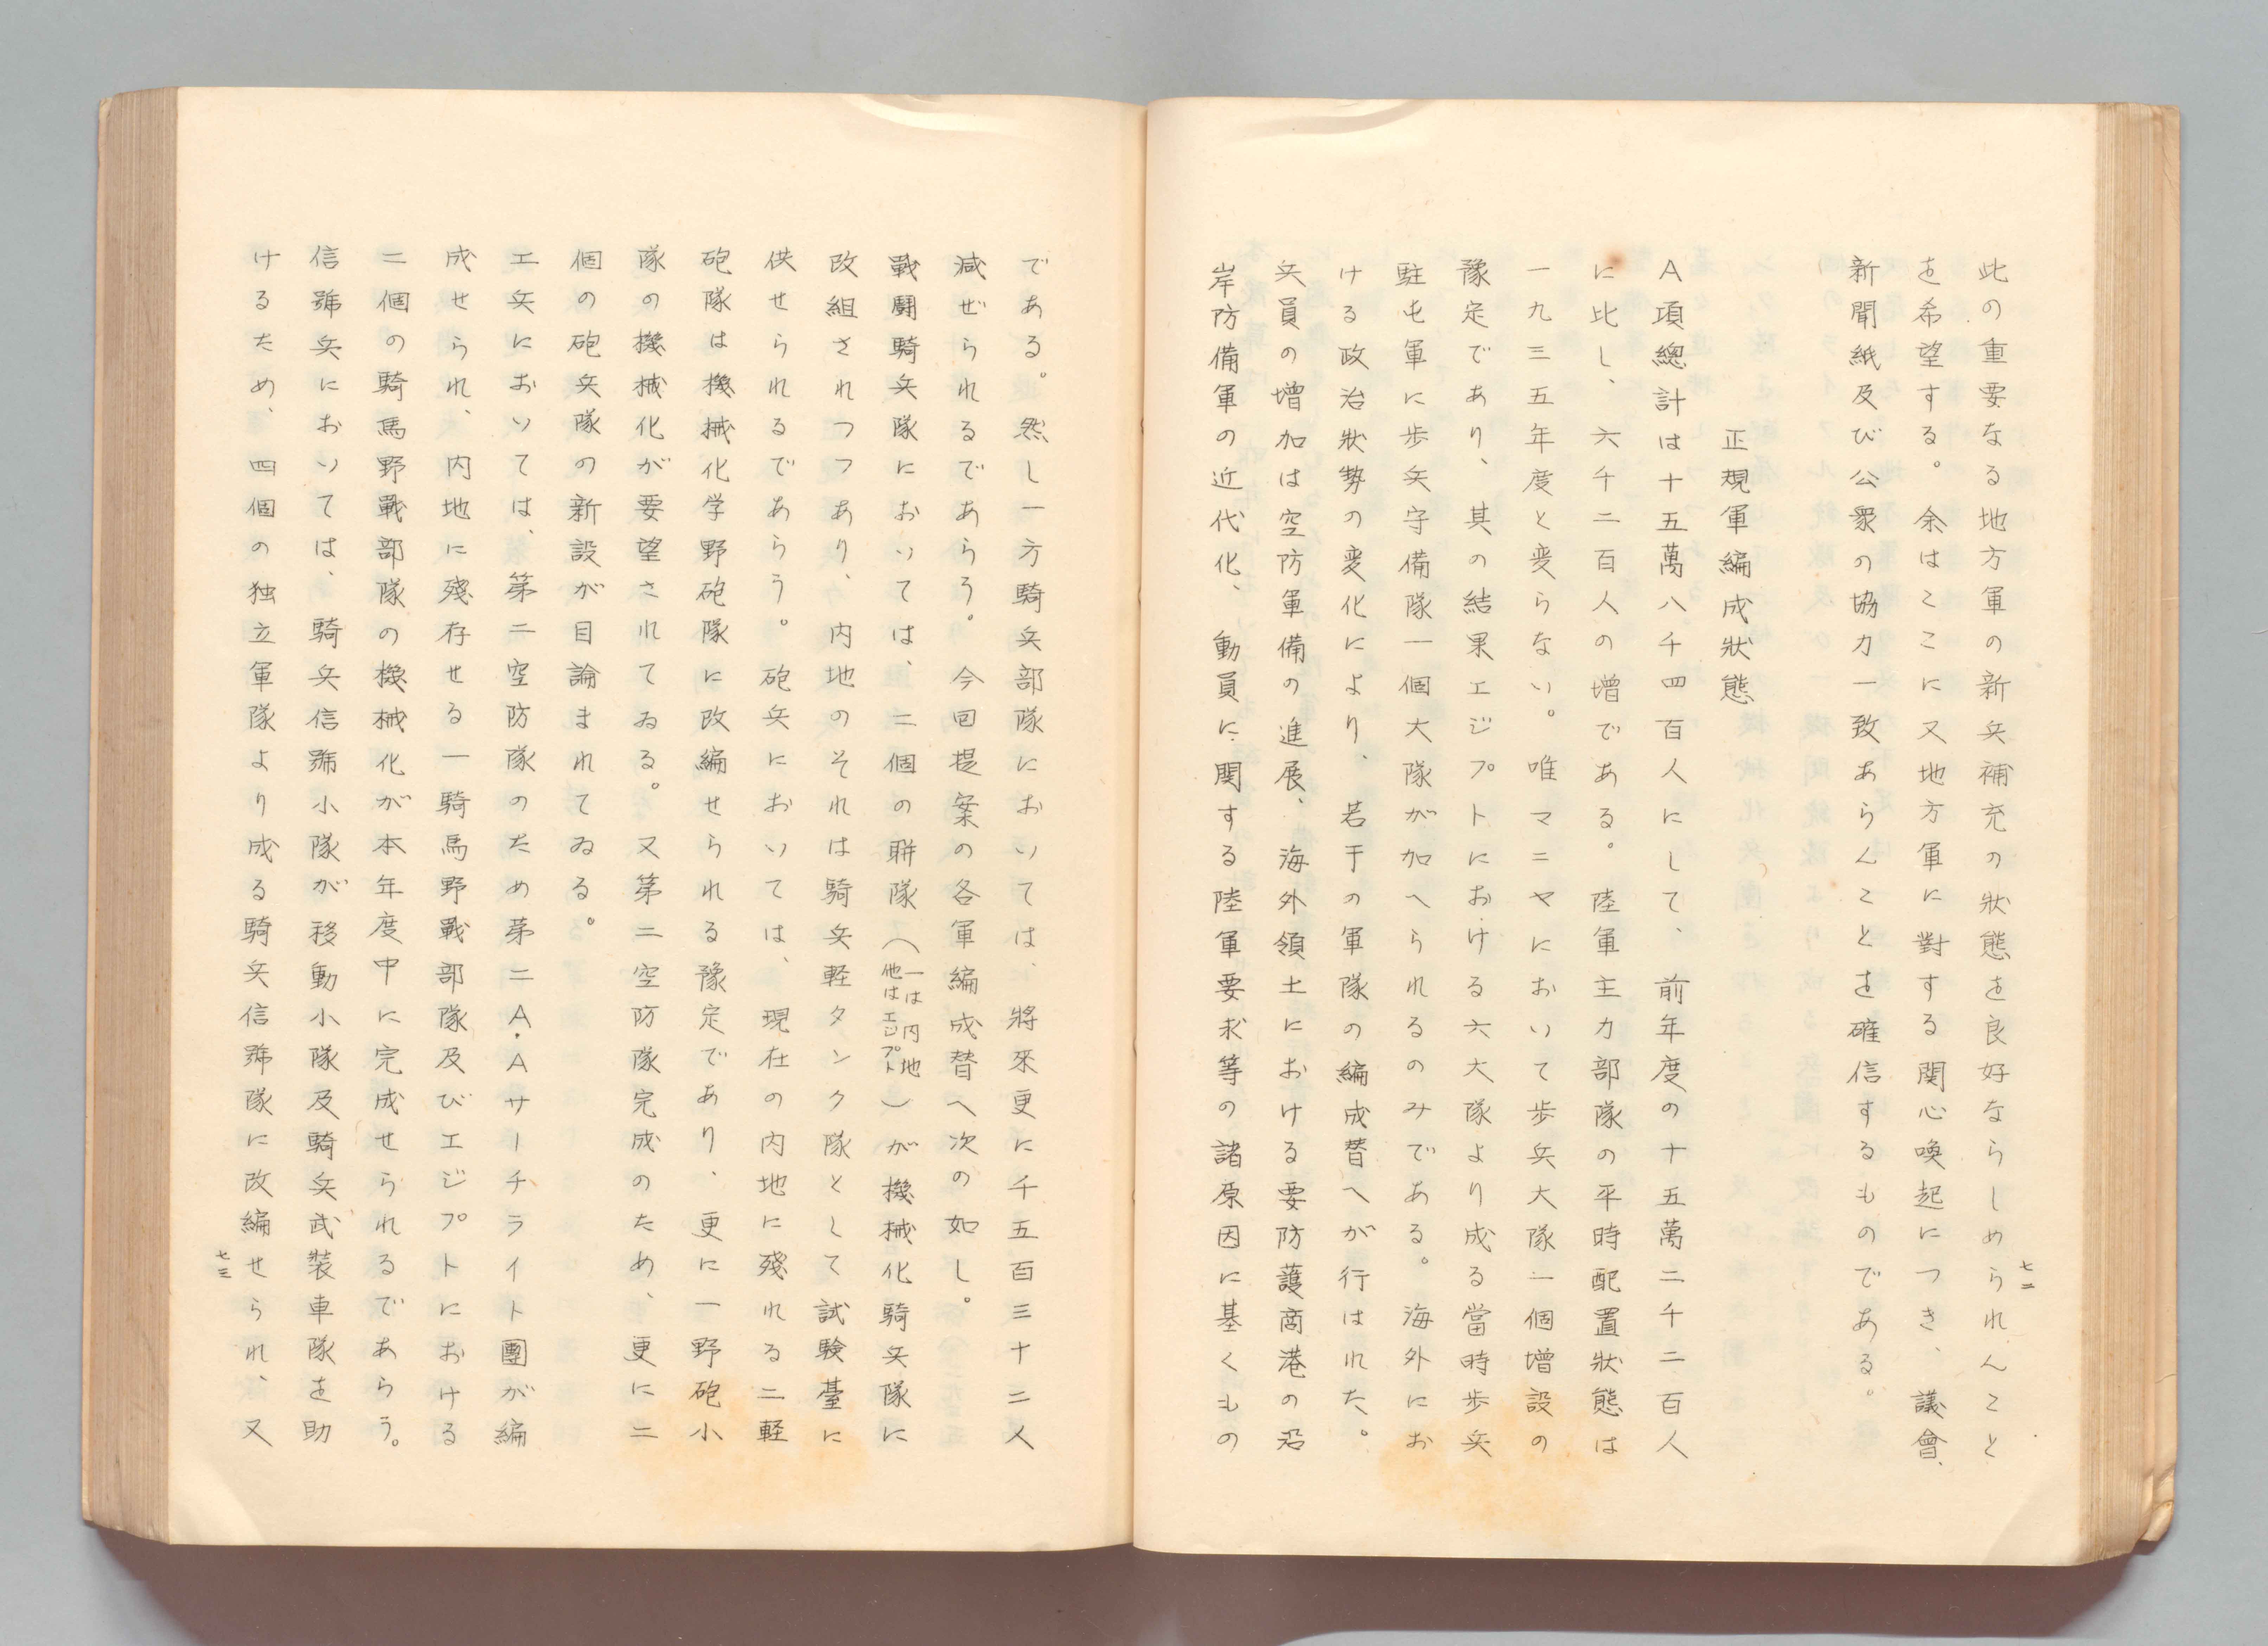 此の重要なる地方軍の新兵補充の狀態を良好ならしめられんこと
を希望する。余はここに又地方軍に對する関心喚起につき、議會、
新聞紙及び公衆の協力一致あらんことを確信するものである。
正規軍編成狀態
A項總計は十五萬八千四百人にして、前年度の十五萬二千二百人
に比し、六千二百人の増である。陸軍主力部隊の平時配置狀態は
一九三五年度と変らない。唯マニヤにおいて歩兵大隊一個増設の
豫定であり、其の結果エジプトにおける六大隊より成る當時歩兵
駐屯軍に歩兵守備隊一個大隊が加へられるのみである。海外にお
ける政治狀勢の変化により、若干の軍隊の編成替へが行はれた。
兵員の増加は空防軍備の進展、海外領土における要防護商港の沿
岸防備軍の近代化、動員に関する陸軍要求等の諸原因に基くもの
七二
である。然し一方騎兵部隊においては、將來更に千五百三十二人
減ぜられるであらう。今回提案の各軍編成替へ次の如し。
戰闘騎兵隊においては、二個の聯隊（一は内地他はエジプト）が機械化騎兵隊に
改組されつつあり、内地のそれは騎兵軽タンク隊として試験臺に
供せられるであらう。砲兵においては、現在の内地に殘れる二軽
砲隊は機械化学野砲隊に改編せられる豫定であり、更に一野砲小
隊の機械化が要望されてゐる。又第二空防隊完成のため、更に二
個の砲兵隊の新設が目論まれてゐる。
工兵においては、第二空防隊のため第二A・Aサーチライト團が編
成せられ、内地に殘存せる一騎馬野戰部隊及びエジプトにおける
二個の騎馬野戰部隊の機械化が本年度中に完成せられるであらう。
信號兵においては、騎兵信號小隊が移動小隊及騎兵武装車隊を助
けるため、四個の独立軍隊より成る騎兵信號隊に改編せられ、又
七三